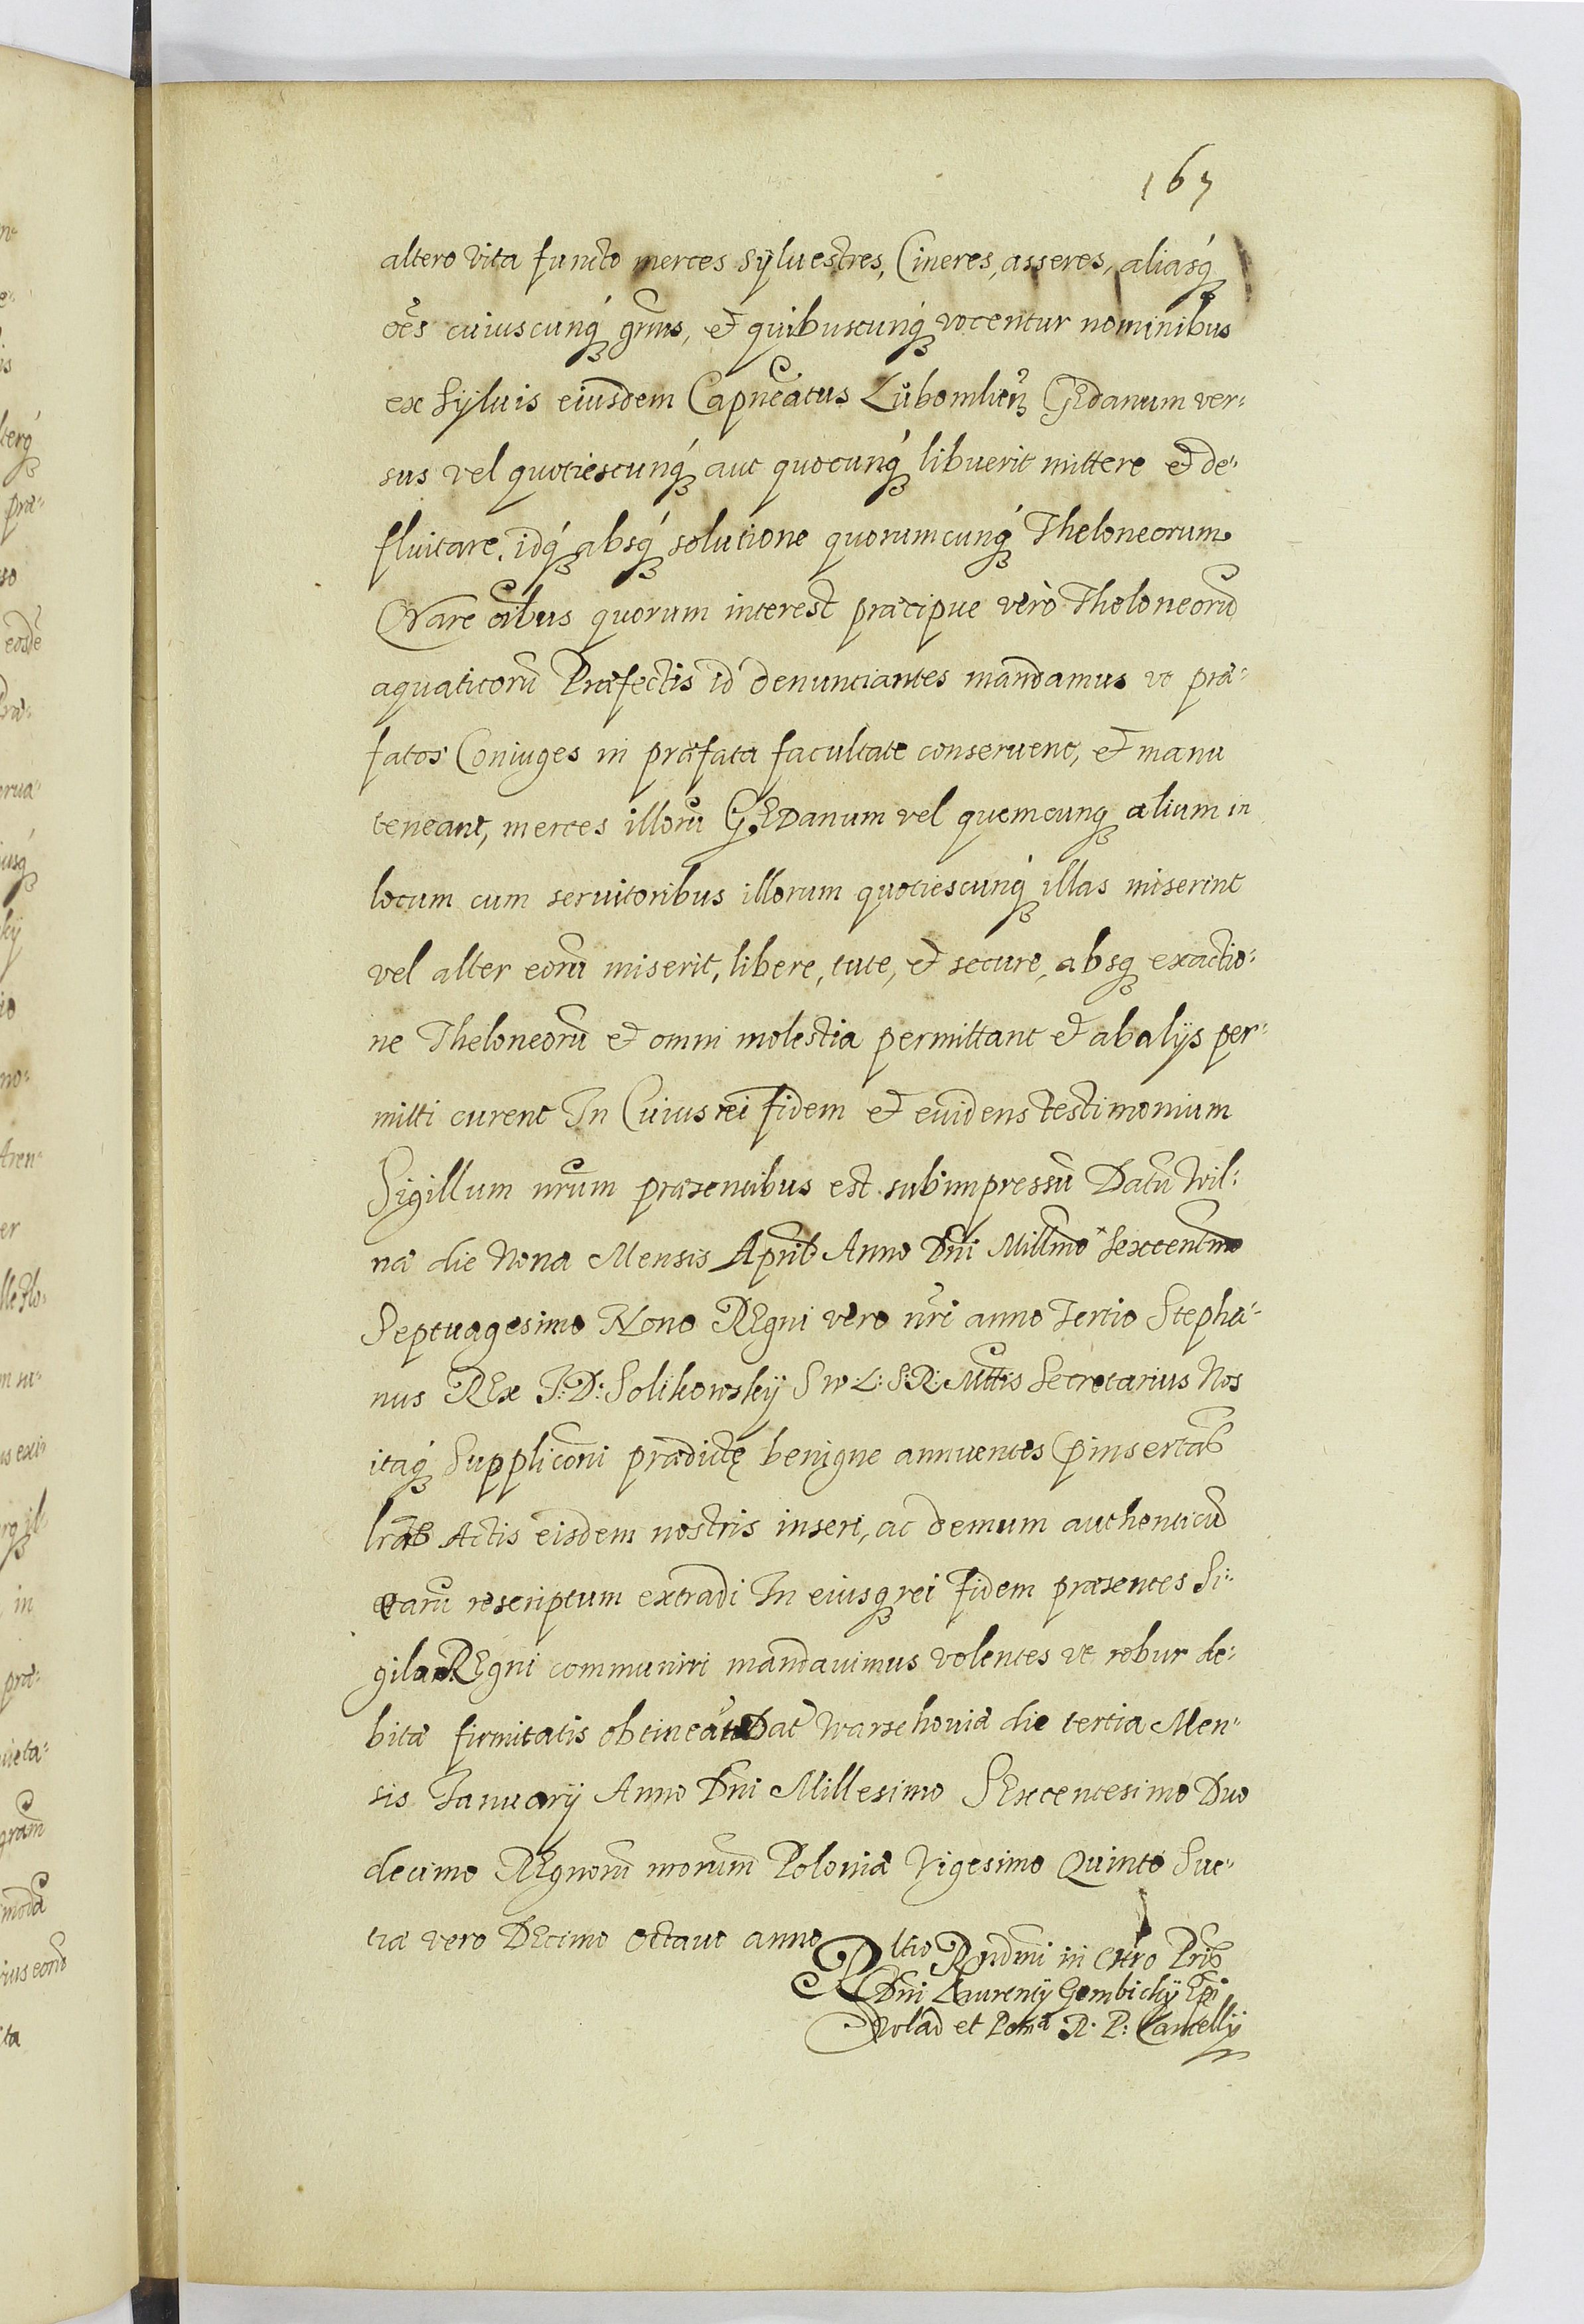 167
altero vita functo merces sÿluestres, Cineres, asseres, aliasq́
oẽs cuiuscunq́ gñris, et quibuscunq́ vocentur nominibus
ex Sÿluis eiusdem Capnẽatus Lubomlieñ GEdanum ver:
sus vel quotiescunq́ aut quocunq́ libuerit mittere et de:
fluitare, idq́ absq́ solutione quorumcunq́ Theloneorum.
Quare oĩbus quorum interest præcipue verò Theloneorũ
aquaticorũ Præfectis id denunciantes mandamus vt præ:
fatos Coniuges in præfata facultate conseruent, et manu
teneant, merces illorũ GEDanum vel quemcunq alium in
locum cum seruitoribus illorum quotiescunq́ illas miserint
vel alter eorũ miserit, libere, tute, et secure, absq exactio:
ne Theloneorũ et omni molestia permittant et ab alijs per:
mitti curent In Cuius rei fidem et euidens testimonium
Sigillum nr̃um præsentibus est subimpressũ Datũ Wil:
næ die Nona Mensis April Anno Dñi Millmõ Sexcentmõ
Septuagesimo Nono REgni vero nr̃i anno Tertio Stepha:
nus REx J: D: Solikowskÿ S w L: S: R: Mttis Secretarius Nos
itaq́ Supplicõni prædictę benigne annuentes p̃insertas
lr̃as Actis eisdem nostris inseri, ac demum authenticũ
earũ rescriptum extradi In eiusq rei fidem præsentes Si:
gilo REgni communiri mandauimus volentes vt robur de:
bitæ firmitatis obtineãt Dat̃ Warschouiæ die tertia Men:
sis Januarÿ Anno Dñi Millesimo SExcentesimo Duo
decimo REgnorũ nr̃orum Poloniæ Vigesimo Quinto Sue:
tiæ vero DEcimo octauo anno
Rltio Rndmi in Chro Pris
Dñi Laurentÿ Gembickÿ Epi
Wlad et Pomæ R. P: Cancellÿ